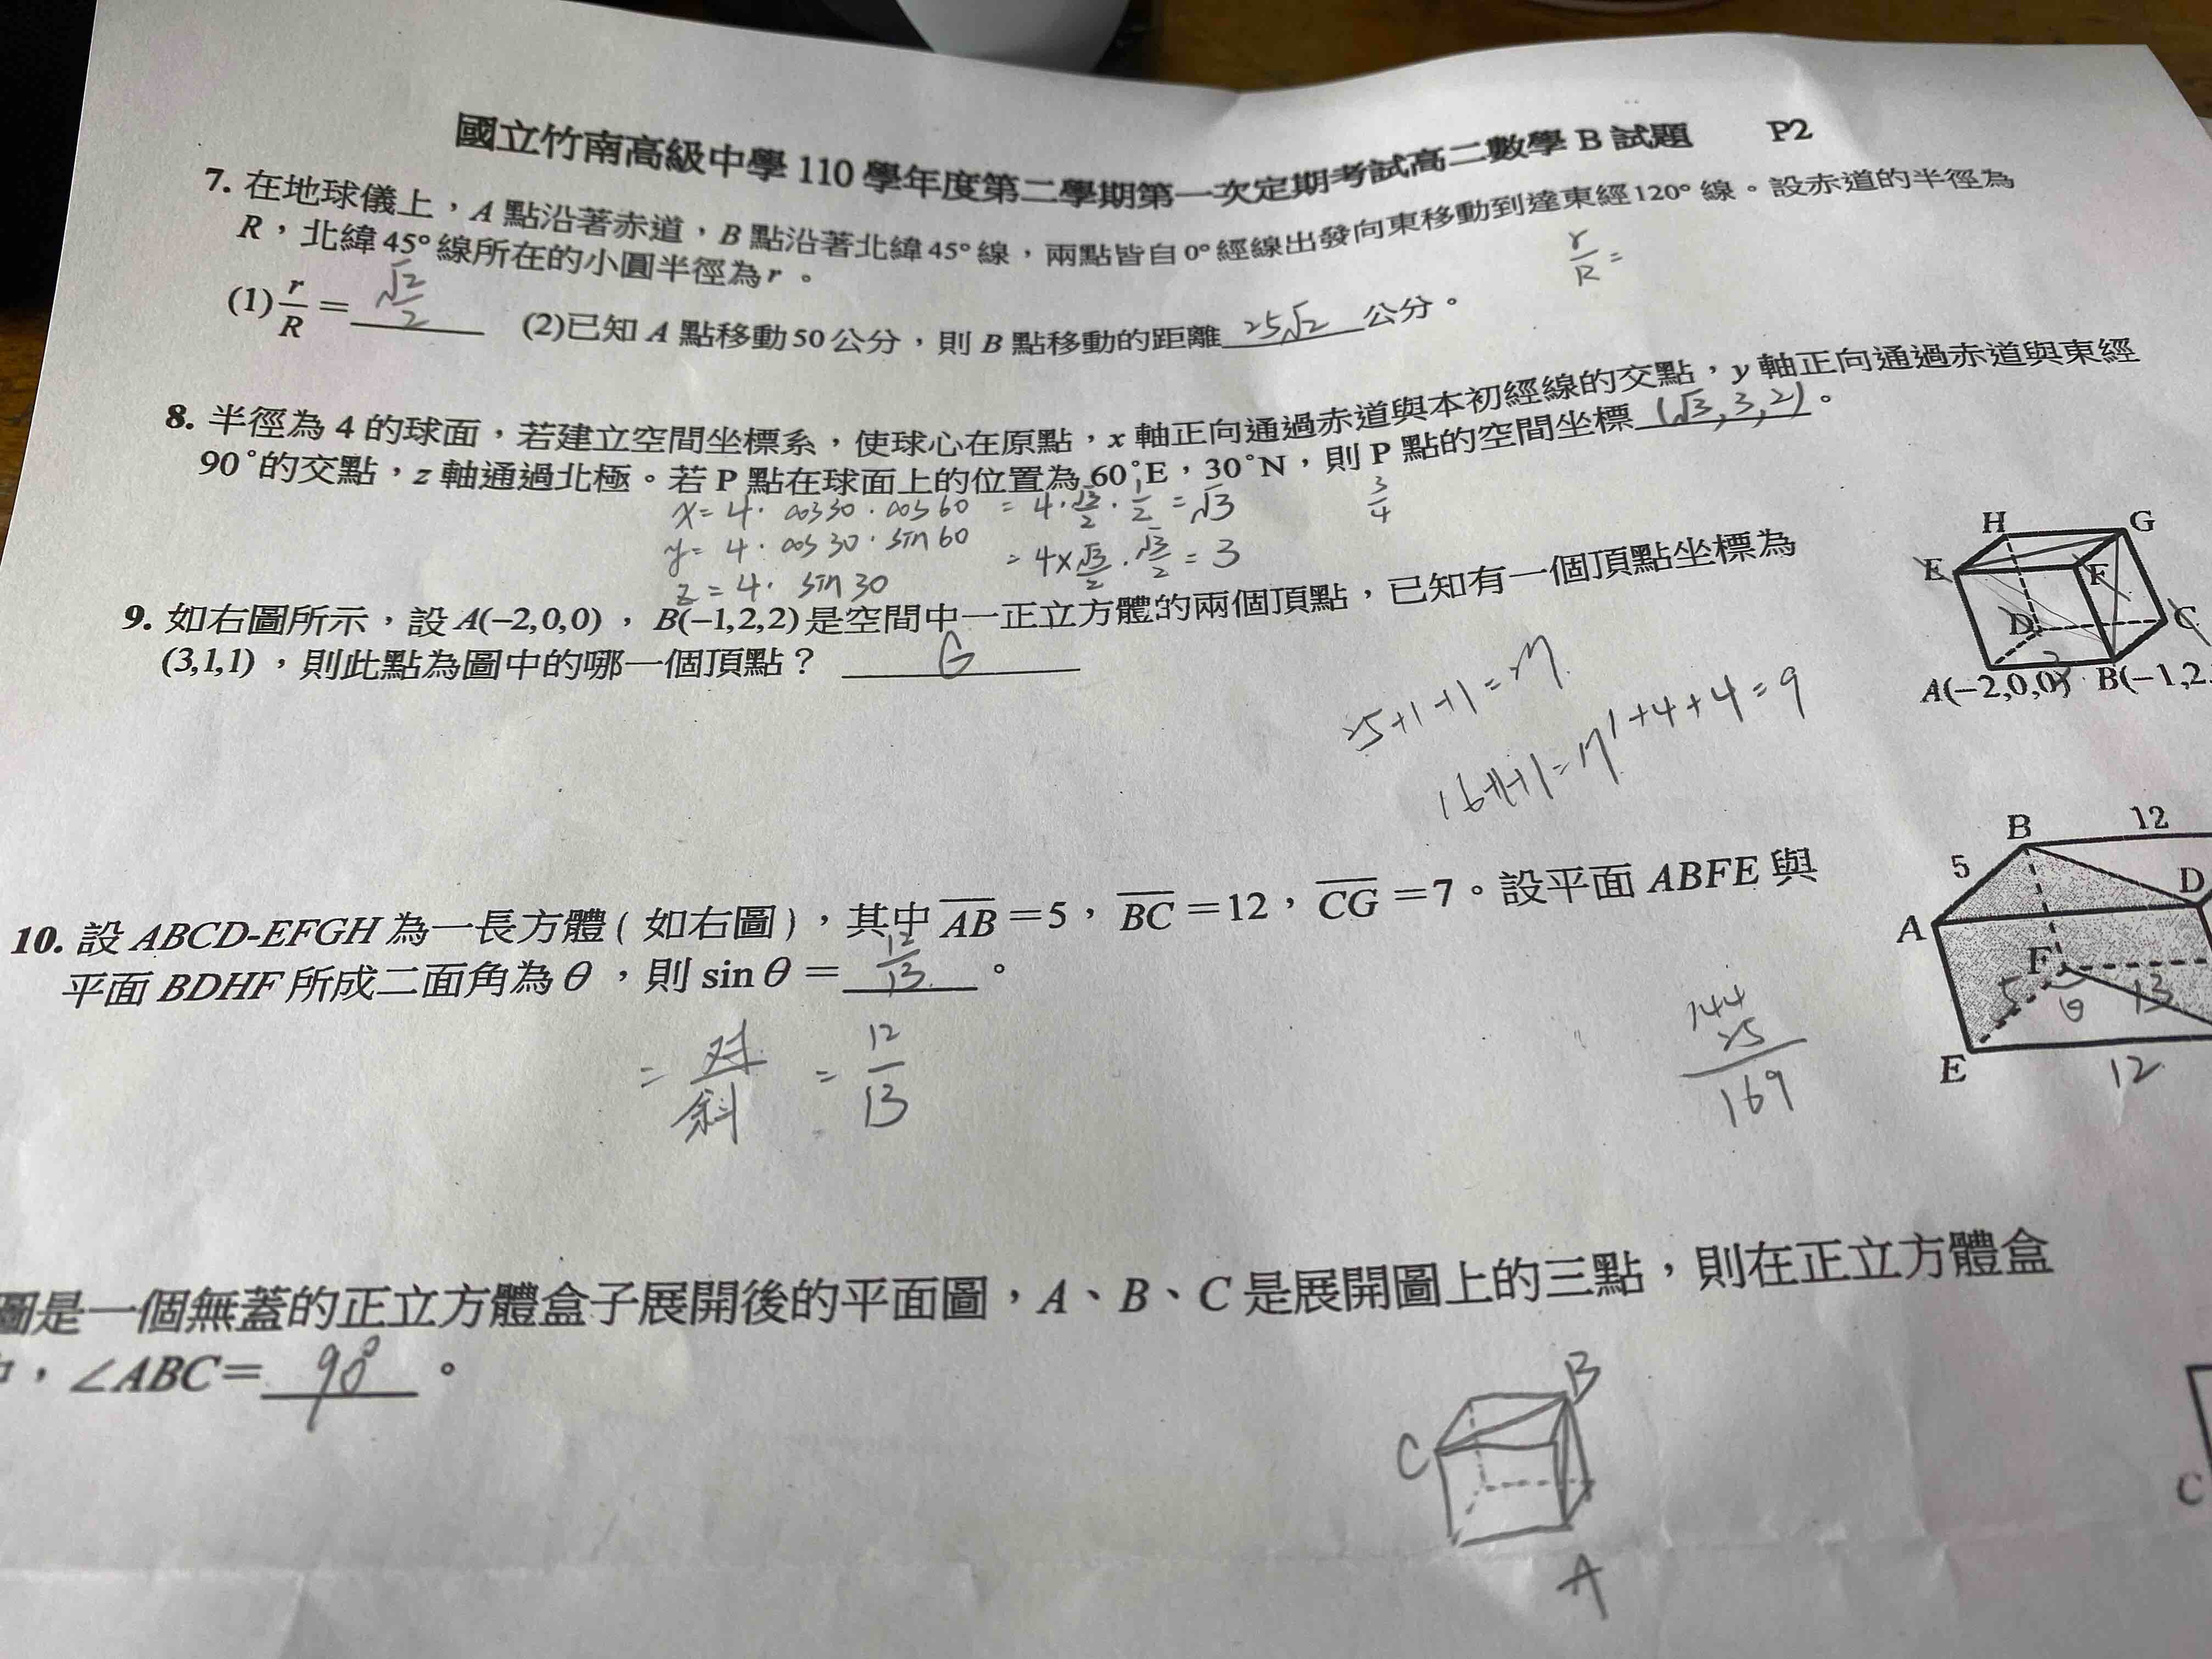 國立竹南高級中學 110 學年度第二學期第一次定期考試高二數學 B 試題 P2
7. 在地球儀上，A 點沿著赤道，B 點沿著北緯 45° 線，兩點皆自 0° 經線出發向東移動到達東經 120° 線。設赤道的半徑為
R，北緯 45° 線所在的小圓半徑為 r 。
r/R =
(1) r/R = √2/2 (2)已知 A 點移動 50 公分，則 B 點移動的距離 25√2 公分。
8. 半徑為 4 的球面，若建立空間坐標系，使球心在原點，x 軸正向通過赤道與本初經線的交點，y 軸正向通過赤道與東經
90°的交點，z 軸通過北極。若 P 點在球面上的位置為 60°E，30°N，則 P 點的空間坐標 (√3,3,2) 。
x= 4· cos30 · cos60 = 4·√3/2·1/2 = √3
3/4
y= 4· cos30 · sin60 = 4×√3/2·√3/2 = 3
z = 4· sin30
9. 如右圖所示，設 A(−2,0,0)，B(−1,2,2) 是空間中一正立方體的兩個頂點，已知有一個頂點坐標為
(3,1,1)，則此點為圖中的哪一個頂點？ G
H G
E F
D C
A(−2,0,0) B(−1,2
3
25+1+1=27
16+1+1=
1+4+4=9
10. 設 ABCD-EFGH 為一長方體 ( 如右圖 )，其中 AB =5，BC =12，CG =7。設平面 ABFE 與
平面 BDHF 所成二面角為 θ ，則 sin θ = 12/13 。
= 对/斜 = 12/13
144
25
169
B 12
5 D
A
F
5 θ 13
E 12
圖是一個無蓋的正立方體盒子展開後的平面圖，A、B、C 是展開圖上的三點，則在正立方體盒
，∠ABC= 90° 。
B
C
A
C